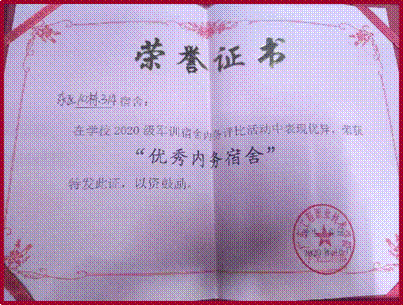 荣誉证书
宿舍：
在学校2020级军训宿舍内务评比活动中表现优异，荣获
“优秀内务宿舍”
特发此证，以资鼓励。